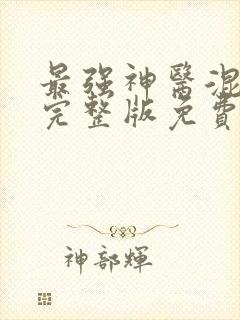 最强神醫混
完整版免費
神部輝